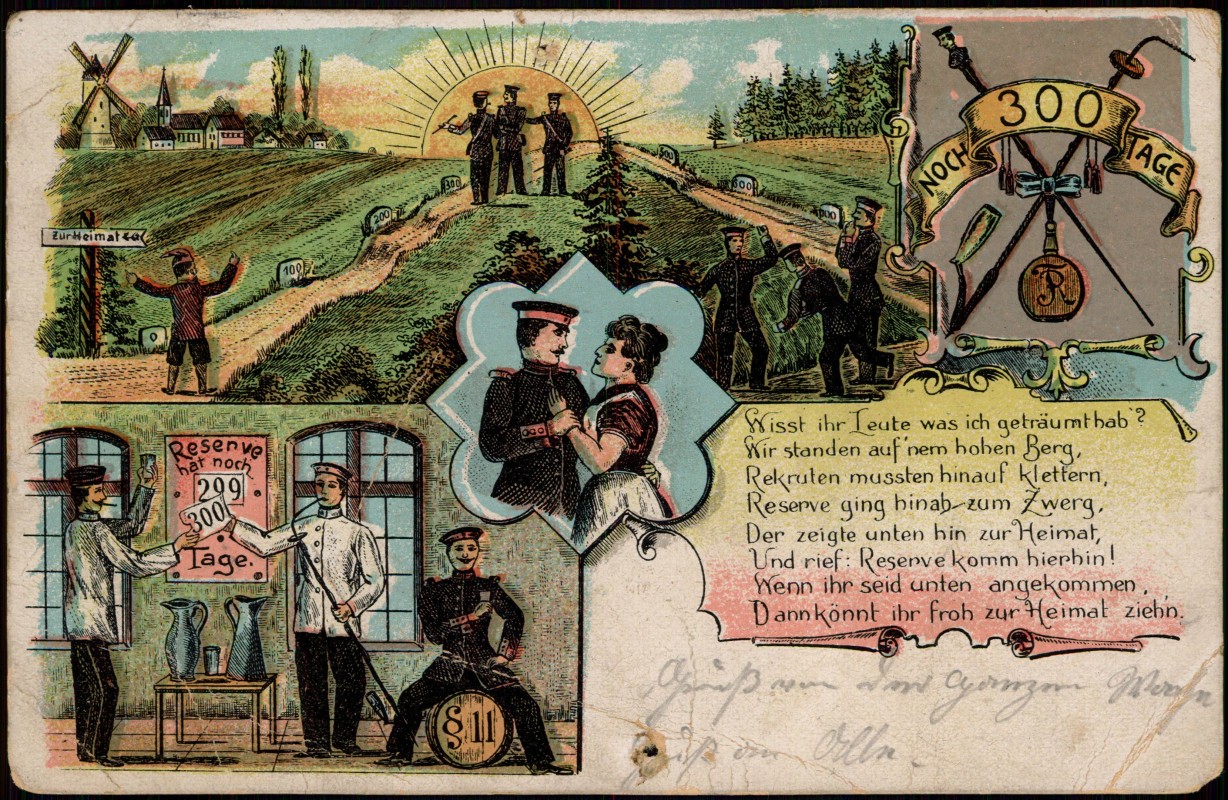 Zur Heimat
0
100
200
300
500
600
NOCH 300 TAGE
R
Reserve
hat noch
299
300
Tage.
§ 11
Wisst ihr Leute was ich geträumt hab'?
Wir standen auf 'nem hohen Berg,
Rekruten mussten hinauf klettern,
Reserve ging hinab zum Zwerg,
Der zeigte unten hin zur Heimat,
Und rief: Reserve komm hierhin!
Wenn ihr seid unten angekommen,
Dann könnt ihr froh zur Heimat zieh'n.
Gruß von der ganzen
Gruß an Alle.